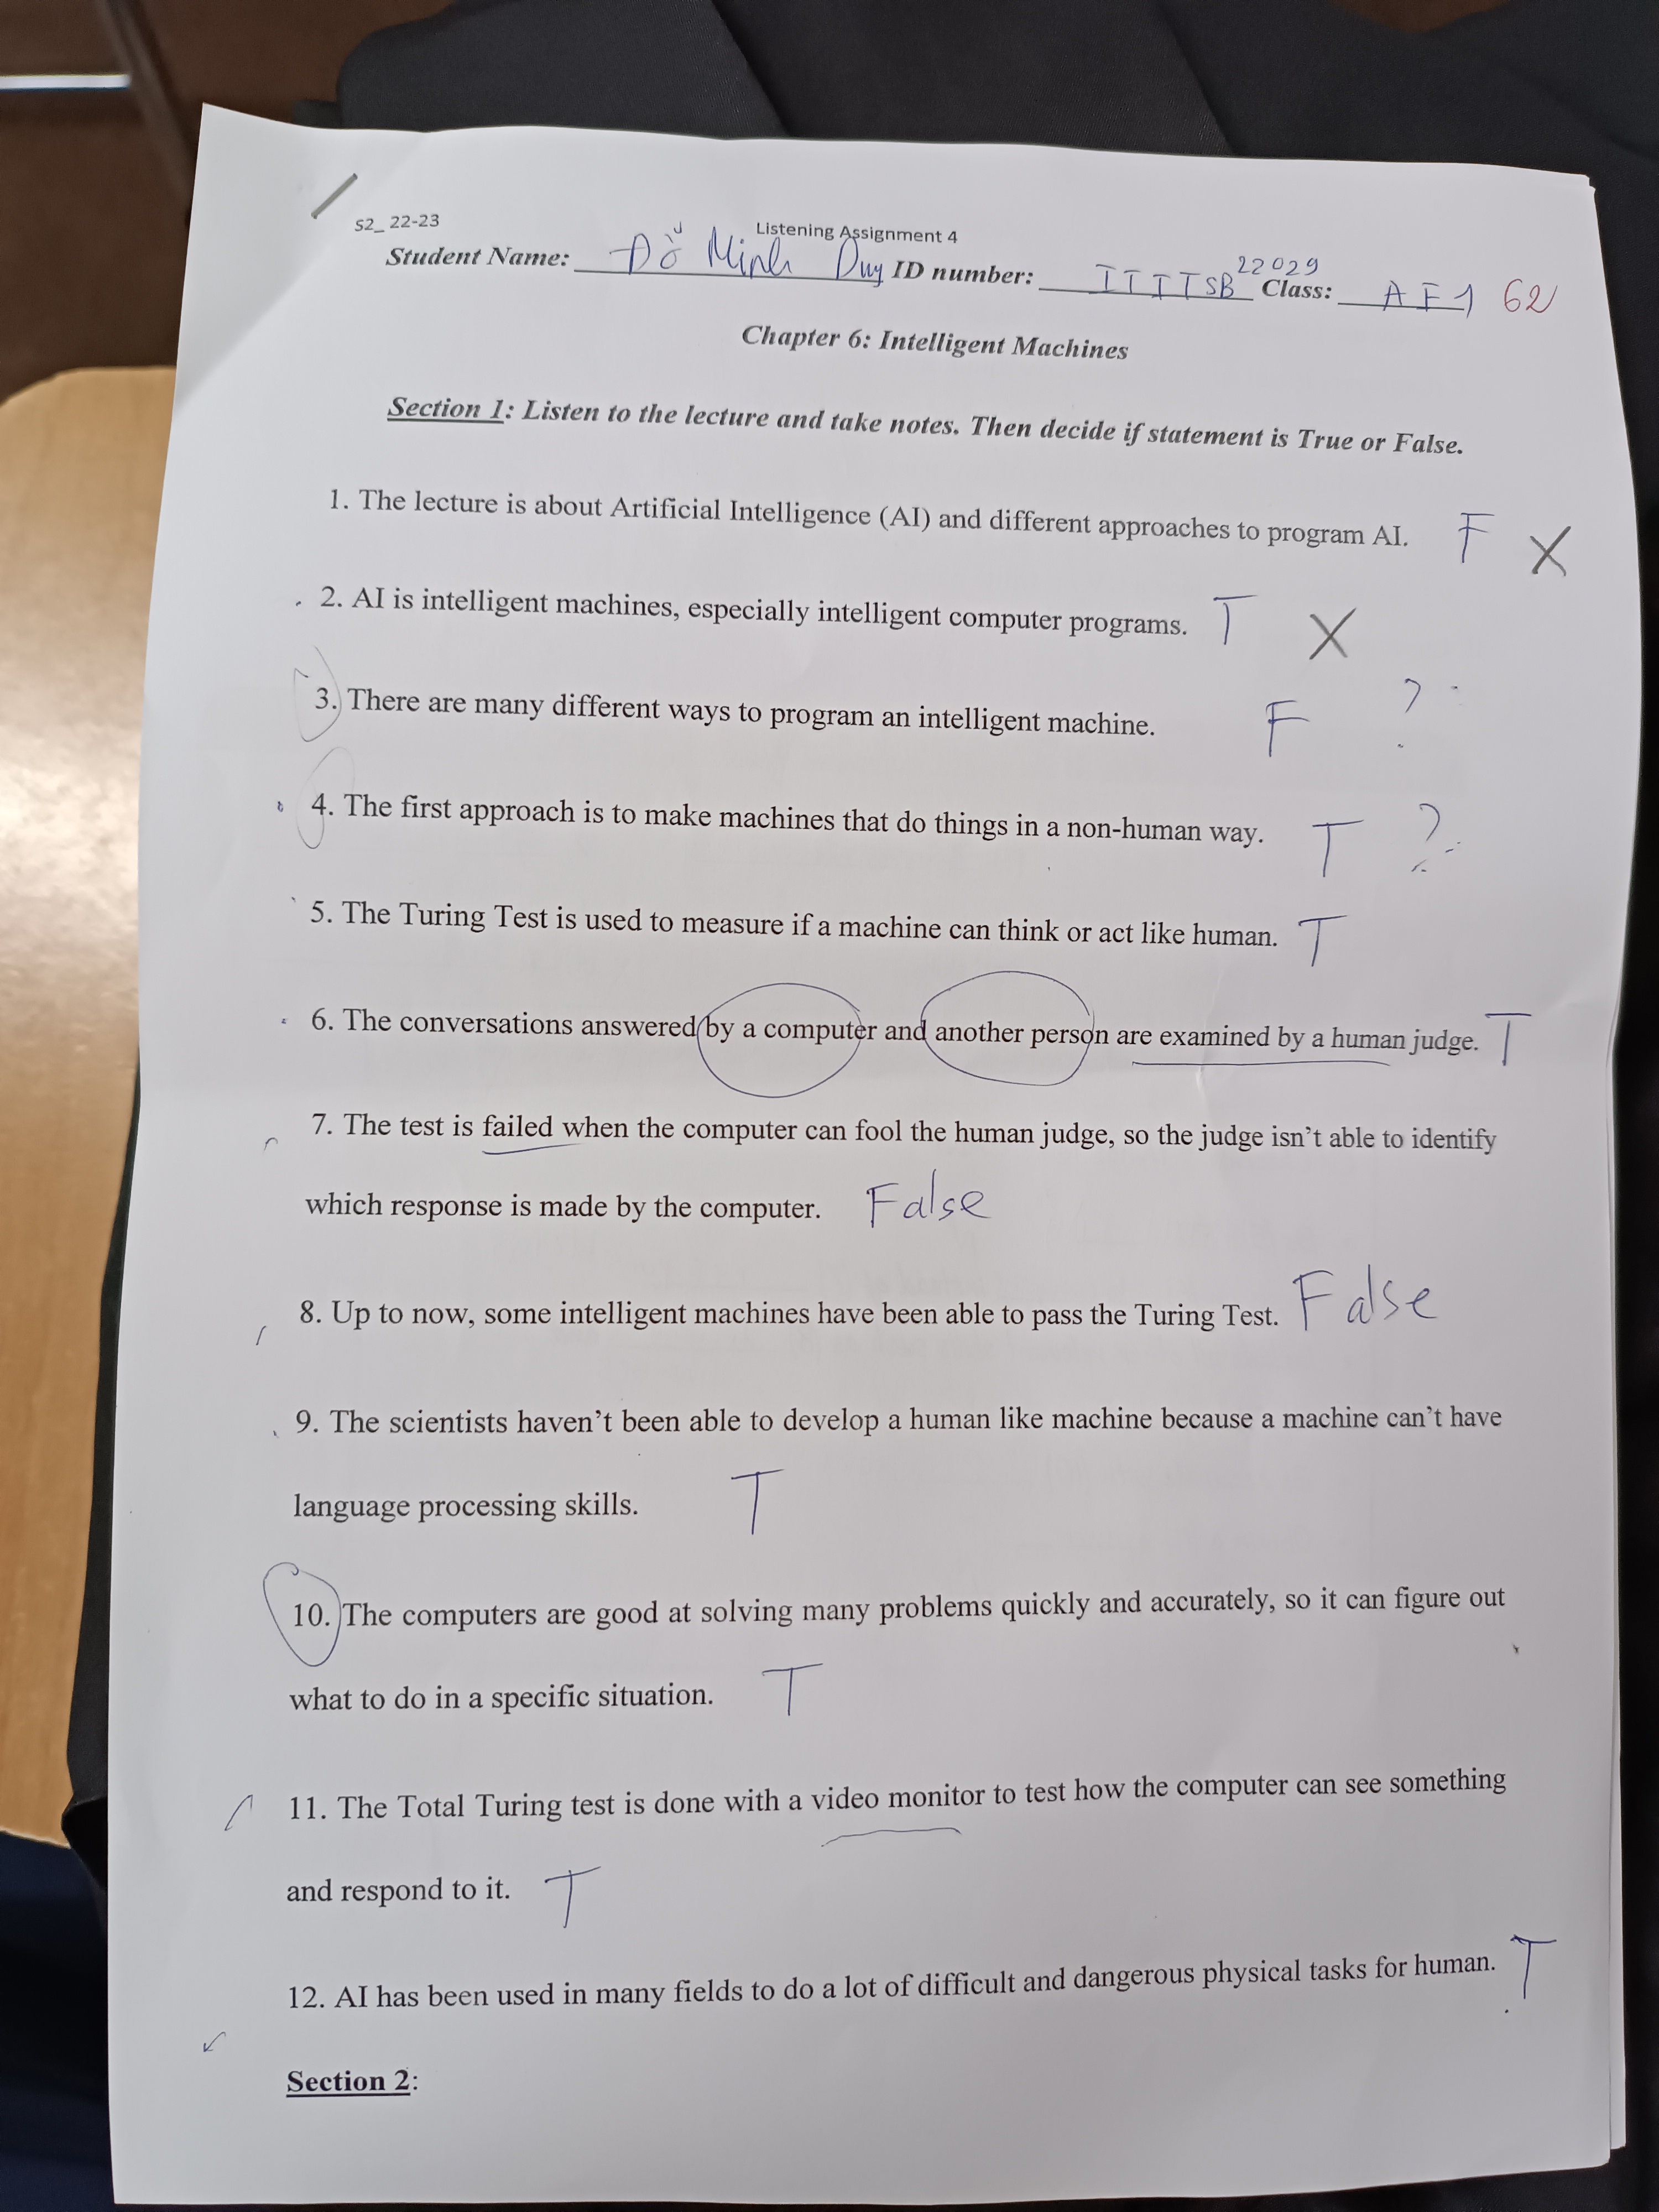 S2_ 22-23
Listening Assignment 4
Student Name: Đỗ Minh Duy ID number: ITITSB 22029 Class: AE1 62
Chapter 6: Intelligent Machines
Section 1: Listen to the lecture and take notes. Then decide if statement is True or False.
1. The lecture is about Artificial Intelligence (AI) and different approaches to program AI. F X
2. AI is intelligent machines, especially intelligent computer programs. T X
3. There are many different ways to program an intelligent machine. F ?
4. The first approach is to make machines that do things in a non-human way. T ?
5. The Turing Test is used to measure if a machine can think or act like human. T
6. The conversations answered by a computer and another person are examined by a human judge. T
7. The test is failed when the computer can fool the human judge, so the judge isn't able to identify
which response is made by the computer. False
8. Up to now, some intelligent machines have been able to pass the Turing Test. False
9. The scientists haven't been able to develop a human like machine because a machine can't have
language processing skills. T
10. The computers are good at solving many problems quickly and accurately, so it can figure out
what to do in a specific situation. T
11. The Total Turing test is done with a video monitor to test how the computer can see something
and respond to it. T
12. AI has been used in many fields to do a lot of difficult and dangerous physical tasks for human. T
Section 2: